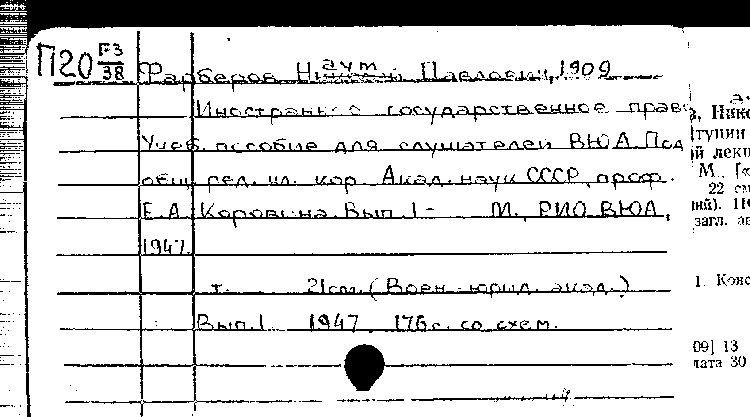 П20 F3/38 Фарберов Н. Павлович, 1909
аут
Иностранное государственное право
Учеб. пособие для слушателей ВЮА Под
общ. ред. чл. кор. Акад. наук СССР, проф.
Е.А. Коровина. Вып. 1- М., РИО ВЮА,
1947
т. 21см. (Воен.-юрид. акад.)
Вып. 1 1947. 176 с. со схем.
в, Нико
тупин
ой лекц
М., [«
22 см
ний). Н
загл. ав
1. Конс
09] 13
лата 30